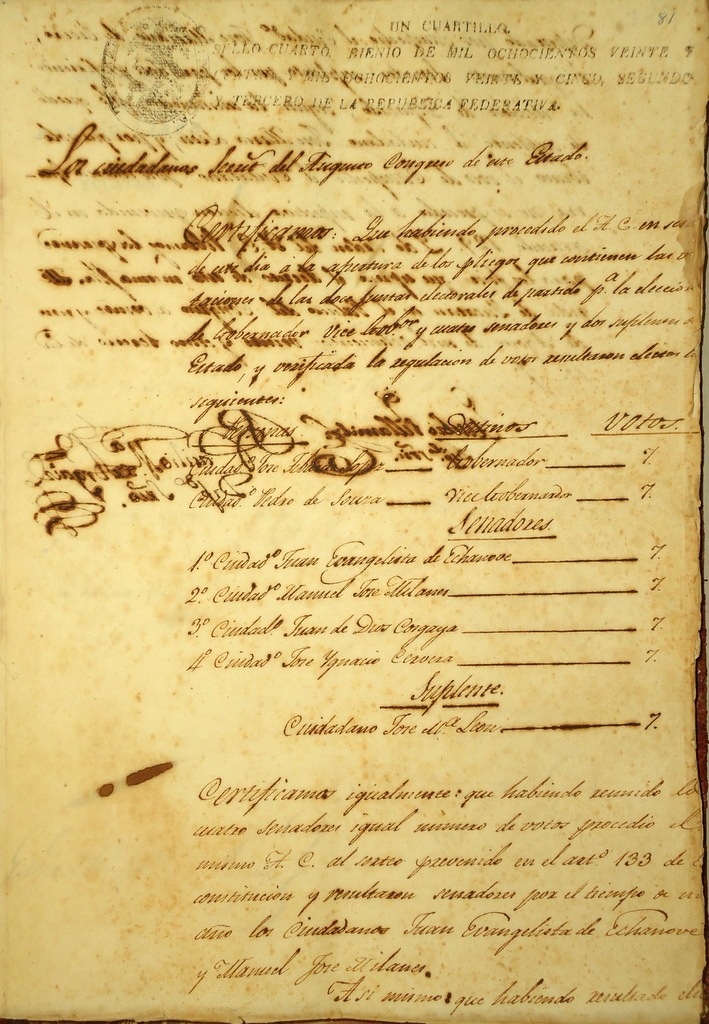 81
UN CUARTILLO.
SELLO CUARTO, BIENIO DE MIL OCHOCIENTOS VEINTE Y
CUATRO, Y MIL OCHOCIENTOS VEINTE Y CINCO, SEGUNDO
Y TERCERO DE LA REPUBLICA FEDERATIVA.
Los ciudadanos Secret. del Augusto Congreso de este Estado.
Certificamos: Que habiendo procedido el A. C. en ses
de este dia á la apertura de los pliegos que contienen las vo
taciones de las doce juntas electorales de partido pa. la eleccion
de Gobernador Vice Gobor. y cuatro senadores y dos suplentes
Estado, y verificada la regulacion de votos resultaron electos
siguientes:
Personas Destinos Votos.
Ciudado. Jose Lopez Gobernador 7.
Ciudado. Pedro de Souza Vice Gobernador 7.
Senadores.
1o. Ciudado. Juan Evangelista de Echanove 7.
2o. Ciudado. Manuel Jose Milanes 7.
3o. Ciudado. Juan de Dios Cosgaya 7.
4o. Ciudado. Jose Ygnacio Cervera 7.
Suplente.
Ciudadano Jose Ma. Leon 7.
Certificamos igualmente: que habiendo reunido lo
cuatro senadores igual numero de votos procedio el
mismo A. C. al sorteo prevenido en el arto. 133 de
constitucion y resultaron senadores por el tiempo de un
año los Ciudadanos Juan Evangelista de Echanove
y Manuel Jose Milanes.
Asi mismo: que habiendo resultado ele